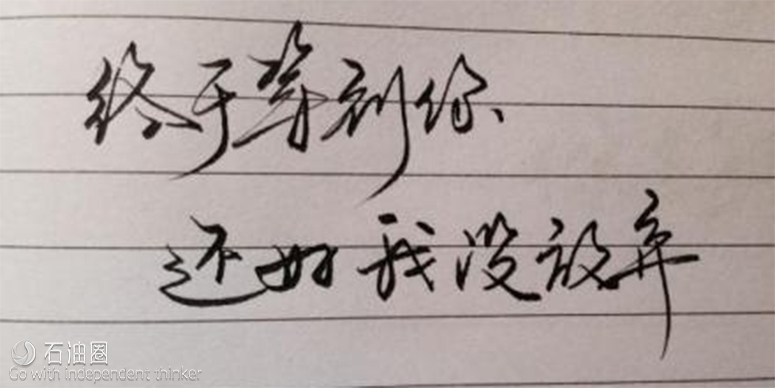 终于等到你
还好我没放弃
石油圈
Go with independent thinker